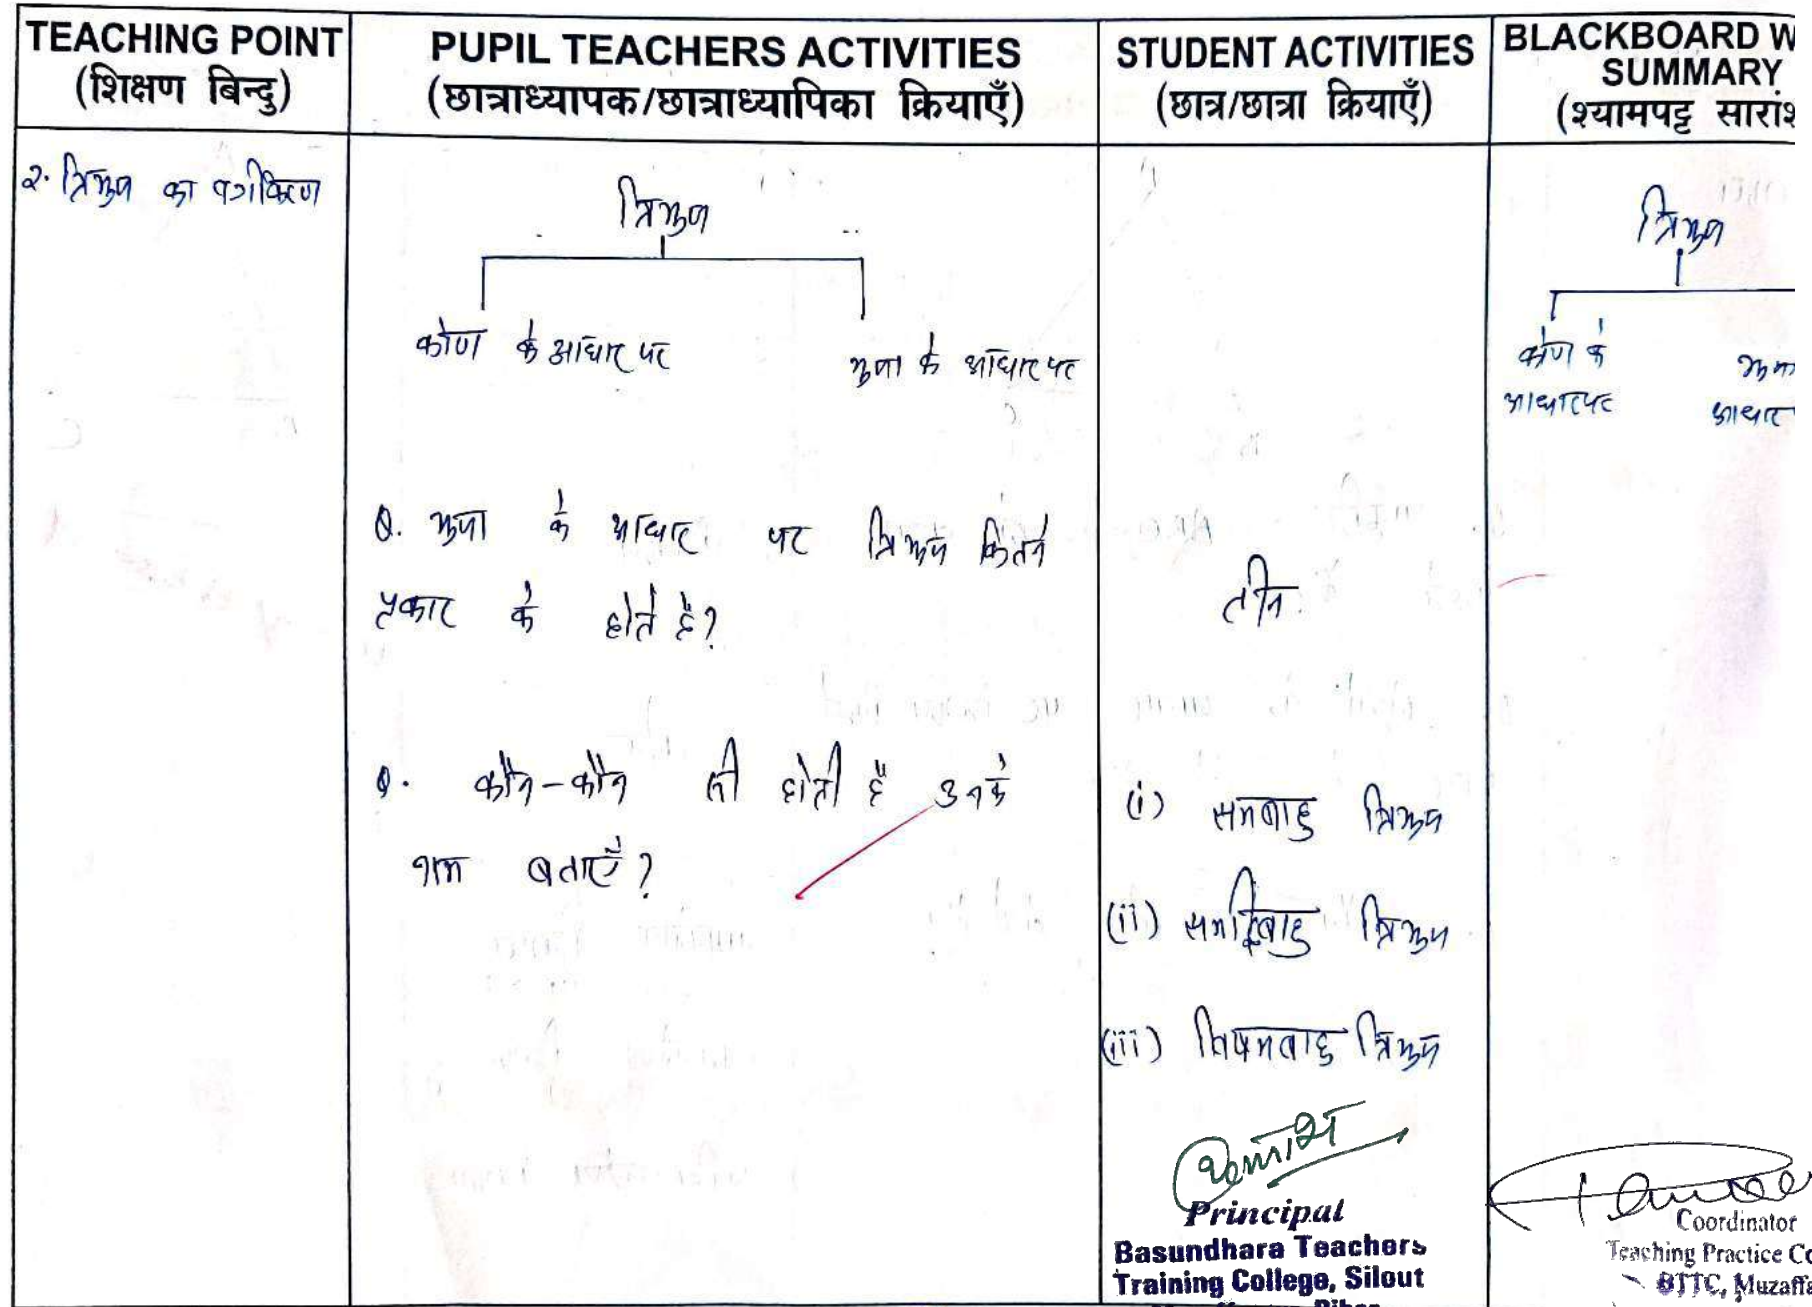 TEACHING POINT
(शिक्षण बिन्दु)
PUPIL TEACHERS ACTIVITIES
(छात्राध्यापक/छात्राध्यापिका क्रियाएँ)
STUDENT ACTIVITIES
(छात्र/छात्रा क्रियाएँ)
BLACKBOARD W
SUMMARY
(श्यामपट्ट सारांश
२. त्रिभुज का वर्गीकरण
त्रिभुज
कोण के आधार पर
भुजा के आधार पर
Q. भुजा के आधार पर त्रिभुज कितने
प्रकार के होते हैं?
Q. कौन-कौन सी होती हैं उनके
नाम बताएँ?
तीन
(i) समबाहु त्रिभुज
(ii) समद्विबाहु त्रिभुज
(iii) विषमबाहु त्रिभुज
Principal
Basundhara Teachers
Training College, Silout
त्रिभुज
कोण के
आधार पर
भुजा
आधार
Coordinator
Teaching Practice Co
BTTC, Muzaffa